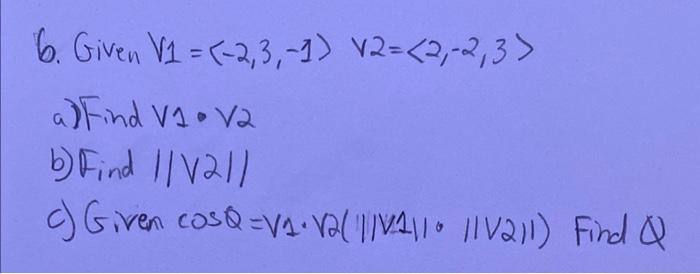 6. Given V1 = <-2,3,-1> V2=<2,-2,3>
a) Find V1 • V2
b) Find ||V2||
c) Given cosθ = V1·V2(||V1||• ||V2||) Find θ